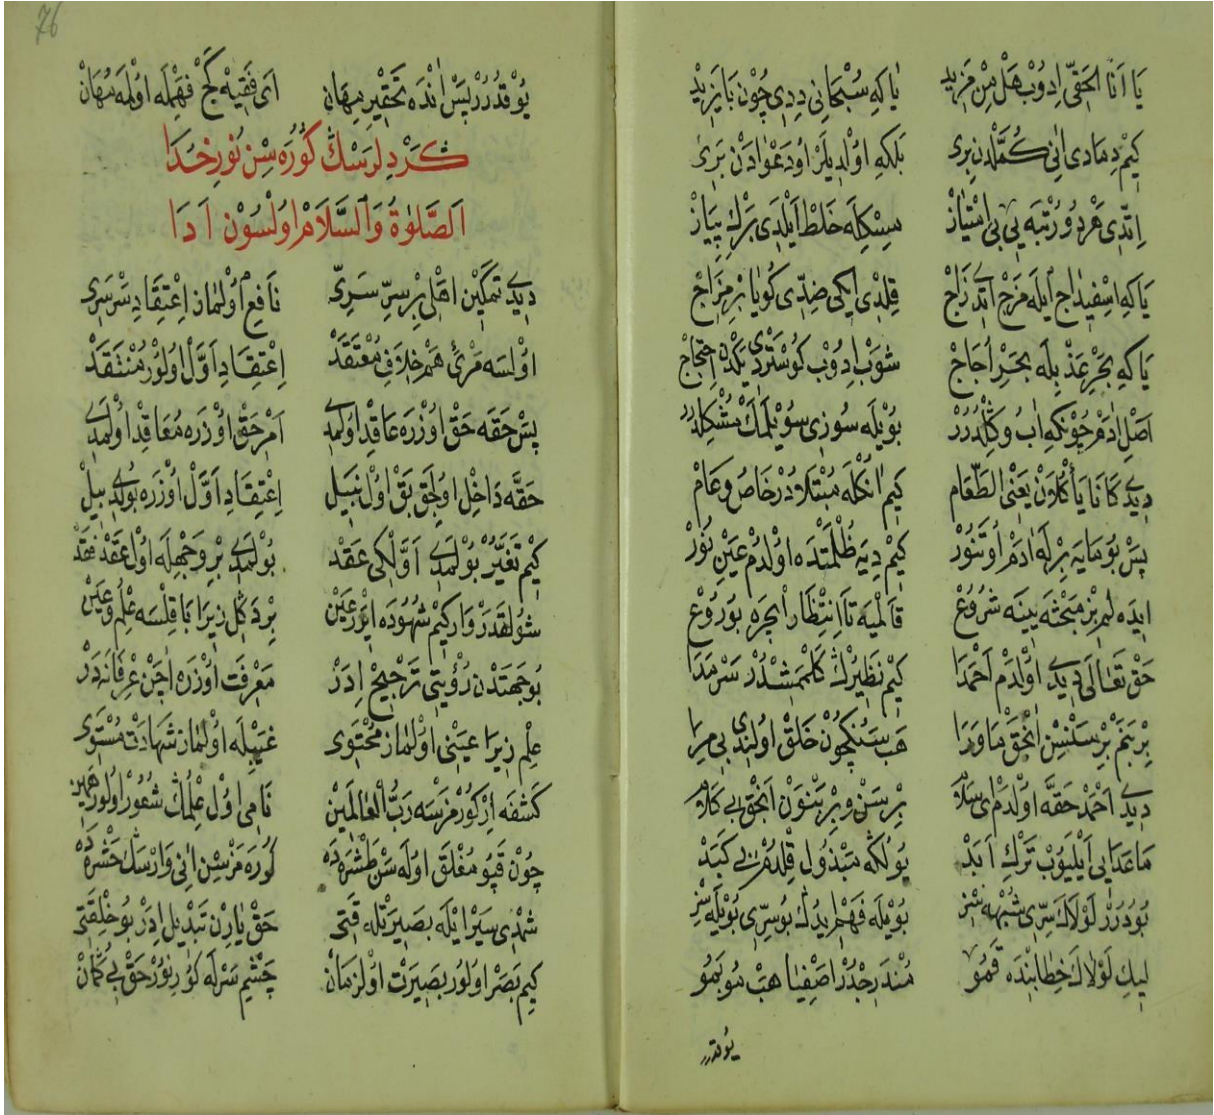 يا انا الحقى ادوب هل من مزيد ياكه سبحانى ددى چون بايزيد
كيم دمادى انى كمّلدن برى بلكه اولديلر او دعوادن برى
اتدى هر دورتبه يى بى امتياز سكله خلط ايلدى برك پياز
ياكه اسفيداج ايله مزج اتدى زاج قلدى ايكى ضدّى كويا بر مزاج
ياكه بحر عذبله بحر اجاج شوب ادوب كوستردى يكدن احتجاج
اصل ادم چونكه اب و كلدرر بويله سوزى سويلمك مشكلدر
ديدى كانا يأكلان يعنى الطعام كيم انكله مبتلادر خاص و عام
پس بو مايه برله ادم اوتنور كيم ديه ظلمتده اولدم عين نور
ايده لم بز مبحثه ينه شروع قالميه تا انتظار ايچره بو روع
حق تعالى ديدى اولدم احمدا كيم نظيرك كلممشدر سرمدا
بر بنم بر سنسن انجق ماورا هب سنكچون خلق اولندى بى مرا
ديدى احمد حقه اولدم اى سلام بر سن و بر بنون انجق بى كلام
ماعدايى ايليوب ترك ابد يولكه مبذول قلدم بى كبد
بودرر لولاك سرّى شبهه سز بويله فهم ايدك بو سرّى بويله سز
ليك لولاك خطابنده قمو مندرجدر اصفيا هب مو بمو
يوقدرر
76
يوقدرر پس انده تحقير مهان اى فقيه كج فهمله اولمه مهان
كردلرسك كوره سن نور خدا
الصلوة والسلام اولسون ادا
ديدى تمكين اهلى بر سرّ سرى نافع اولماز اعتقاد سرسرى
اولسه مرئى هم خلاف معتقد اعتقاد اوّل اولور منتقد
پس حقه حق اوزره عاقد اولمدى امر حق اوزره معاقد اولمدى
حقّه داخل اوليجق بق اول نبيل اعتقاد اوّل اوزره بولدى بيل
كيم تغيّر بولمدى اوّلكى عقد بولمدى بر وجهله اول عقد فقد
شولقدر وار كيم شهوده ايرر عين بر دكل زيرا باقلسه علم و عين
بو جهتدن رؤيتى ترجيح ادر معرفت اوزره اچن عرفانه در
علم زيرا عينى اولماز محتوى غيبله اولماز شهادت مستوى
كشفه اركورمزسه رب العالمين نامى اول علمك شعور اولور همين
چون قپو مغلق اوله سن طشره ده كوره مزسن انى وارسك حشره ده
شهدى سير ايله بصيرتله قتى حق يارن تبديل ادر بو خلقتى
كيم بصر اولور بصيرت اول زمان چشم سرله كورينور حق بى كمان